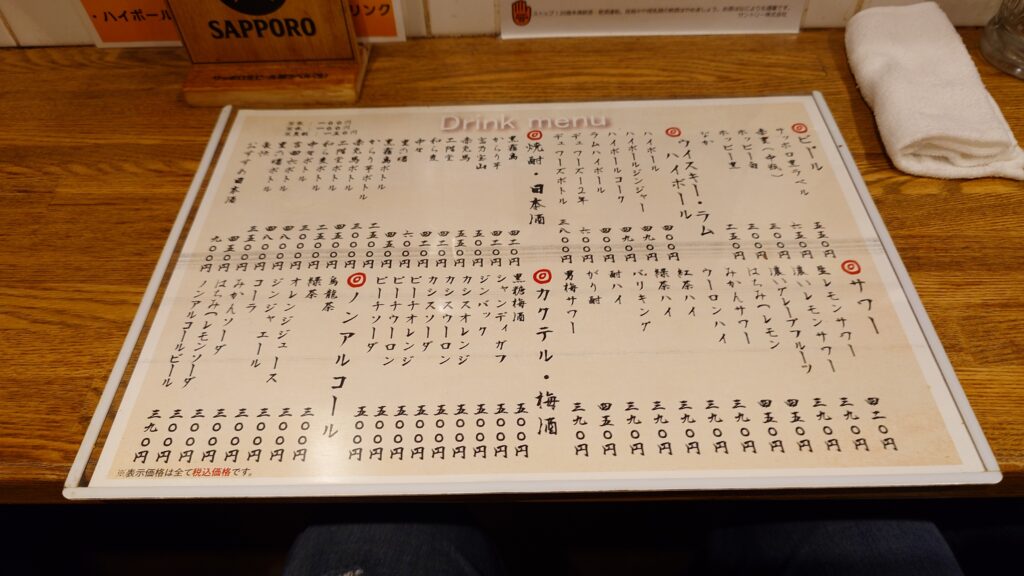 ・ハイボール
リンク
SAPPORO
ストップ！20歳未満飲酒・飲酒運転。
サントリー株式会社
Drink menu
ビール
サッポロ黒ラベル 五五〇円
赤星（中瓶） 六五〇円
ホッピー白 五〇〇円
ホッピー黒 五〇〇円
なか 二五〇円
ウイスキー・ラム
ハイボール
ハイボール 四〇〇円
ハイボールジンジャー 四九〇円
ハイボールコーク 四九〇円
ラムハイボール
デュワーズ12年 六〇〇円
デュワーズボトル 三八〇〇円
焼酎・日本酒
黒霧島 四二〇円
からり芋 四二〇円
富乃宝山 五〇〇円
赤兎馬 五五〇円
二階堂 四二〇円
和ら麦 四二〇円
黒霧島ボトル
からり芋ボトル
赤兎馬ボトル
二階堂ボトル
和ら麦ボトル
おすすめ日本酒 九〇〇円
サワー
生レモンサワー 四二〇円
濃いレモンサワー 三九〇円
濃いグレープフルーツ 四五〇円
はちみつレモン 四五〇円
みかんサワー 三九〇円
ウーロンハイ 三九〇円
紅茶ハイ 三九〇円
緑茶ハイ 三九〇円
バリキング 三九〇円
酎ハイ
がり酎 四五〇円
男梅サワー 三九〇円
カクテル・梅酒
黒糖梅酒 五〇〇円
シャンディガフ 五〇〇円
ジンバック 五〇〇円
カシスオレンジ 五〇〇円
カシスウーロン 五〇〇円
カシスソーダ 五〇〇円
ピーチオレンジ 五〇〇円
ピーチウーロン 五〇〇円
ピーチソーダ 五〇〇円
ノンアルコール
烏龍茶 三〇〇円
緑茶 三〇〇円
オレンジジュース 三〇〇円
ジンジャエール 三〇〇円
コーラ 三〇〇円
みかんソーダ 三〇〇円
はちみつレモンソーダ 三〇〇円
ノンアルコールビール 三九〇円
※表示価格は全て税込価格です。